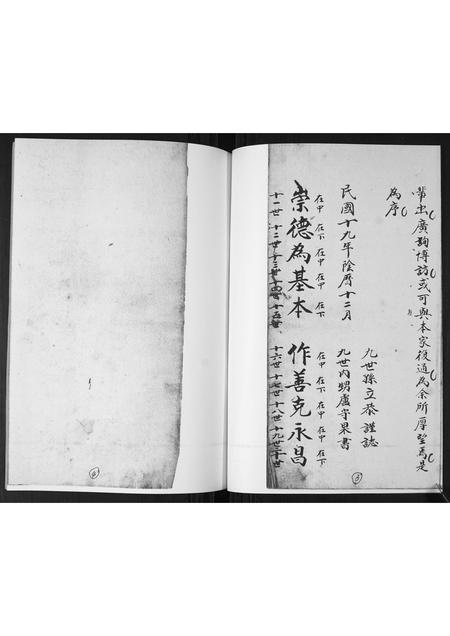 輩出廣詢博訪或可與本家後過為余所厚望焉是
為序
九世孫立恭謹誌
民國十九年陰曆十二月
九世內甥盧守果書
在中 在下 在中 在中 在下 在中 在下 在中 在中 在下
崇德為基本 作善克永昌
十一世 十二世 十三世 十四世 十五世 十六世 十七世 十八世 十九世 二十世
3
4